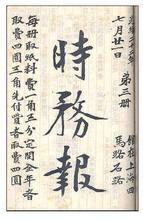 光緒二十二年
七月廿一日
第三冊
館在上海四
馬路石路
時務報
每冊取紙料費一角五分定閱全年者
取費四圓三角先付貲者取費四圓